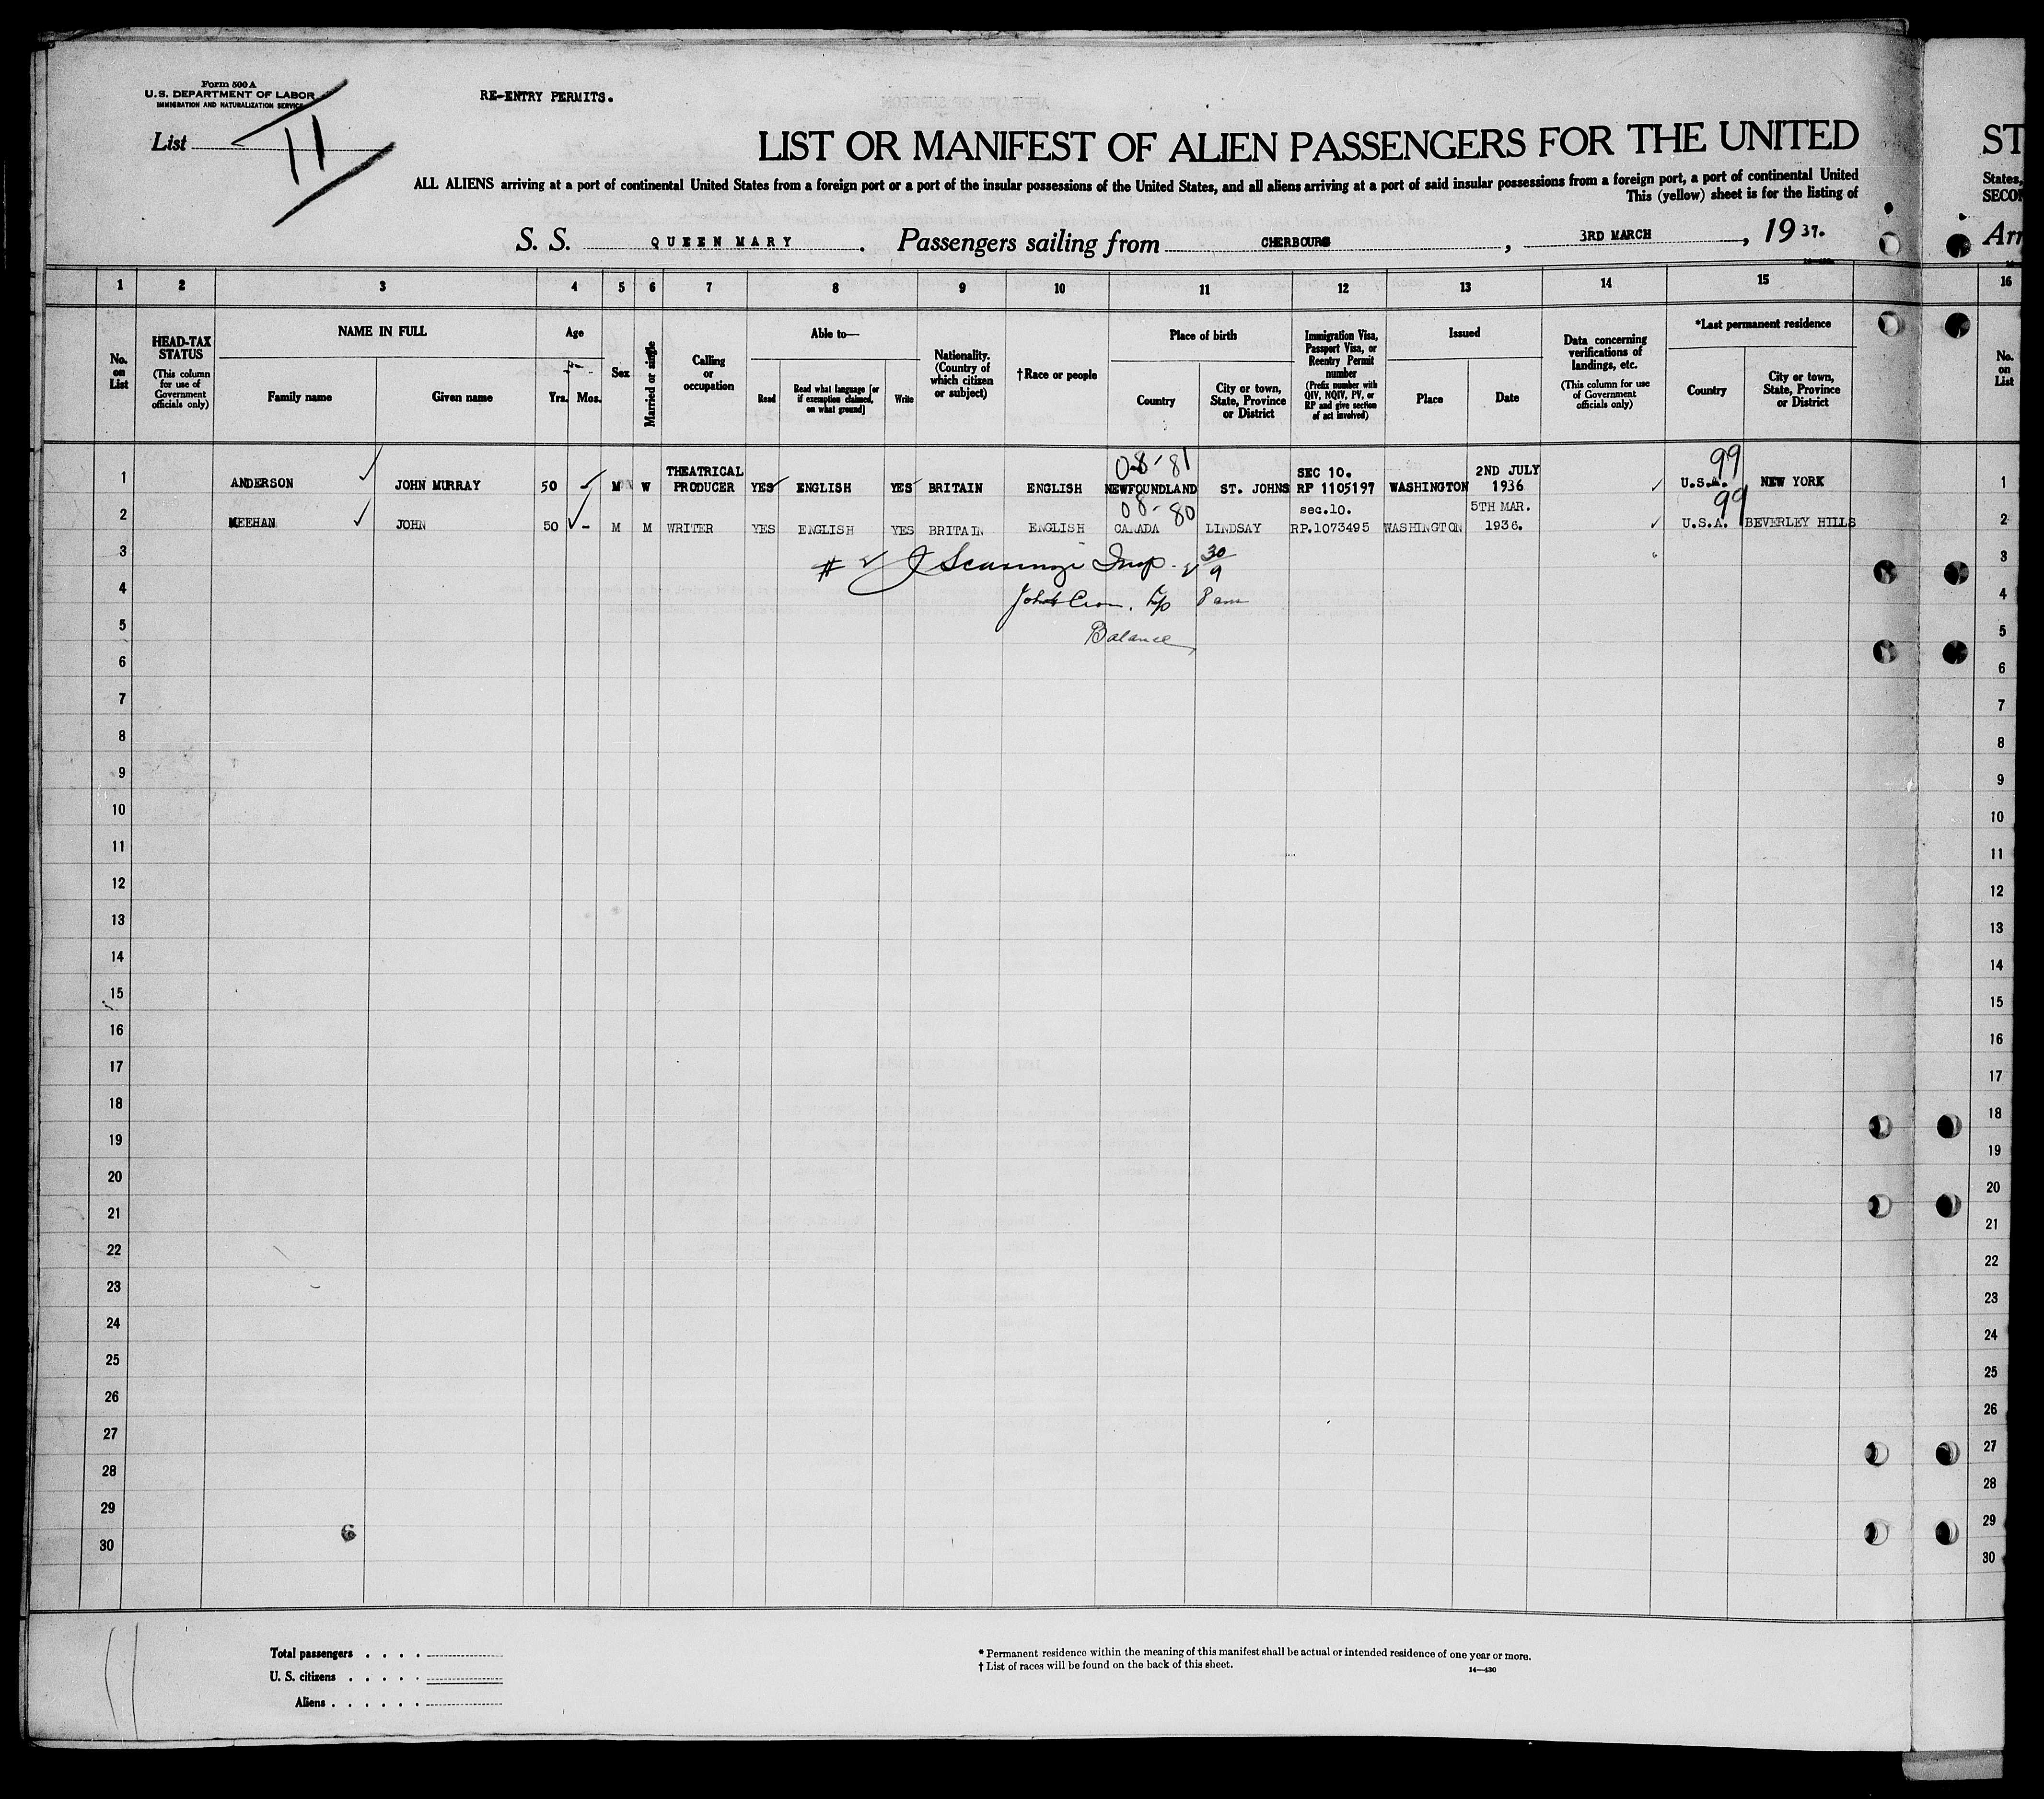 Form 500 A
U. S. DEPARTMENT OF LABOR
IMMIGRATION AND NATURALIZATION SERVICE
RE-ENTRY PERMITS.
List 11
LIST OR MANIFEST OF ALIEN PASSENGERS FOR THE UNITED
ST
ALL ALIENS arriving at a port of continental United States from a foreign port or a port of the insular possessions of the United States, and all aliens arriving at a port of said insular possessions from a foreign port, a port of continental United
States,
This (yellow) sheet is for the listing of
SECON
S. S. QUEEN MARY. Passengers sailing from CHERBOURG, 3RD MARCH, 1937.
Arr
1 2 3 4 5 6 7 8 9 10 11 12 13 14 15 16
No. on List
HEAD-TAX STATUS
(This column for use of Government officials only)
NAME IN FULL
Family name
Given name
Age
Yrs. Mos.
Sex
Married or single
Calling or occupation
Able to—
Read
Read what language [or if exemption claimed, on what ground]
Write
Nationality. (Country of which citizen or subject)
†Race or people
Place of birth
Country
City or town, State, Province or District
Immigration Visa, Passport Visa, or Reentry Permit number
(Prefix number with QIV, NQIV, PV, or RP and give section of act involved)
Issued
Place
Date
Data concerning verifications of landings, etc.
(This column for use of Government officials only)
*Last permanent residence
Country
City or town, State, Province or District
No. on List
0-8-81 99
1 ANDERSON JOHN MURRAY 50 - M W THEATRICAL PRODUCER YES ENGLISH YES BRITAIN ENGLISH NEWFOUNDLAND ST. JOHNS SEC 10. RP 1105197 WASHINGTON 2ND JULY 1936 U.S.A. NEW YORK 1
08-80 99
2 MEEHAN JOHN 50 - M M WRITER YES ENGLISH YES BRITAIN ENGLISH CANADA LINDSAY sec.10. RP.1073495 WASHINGTON 5TH MAR. 1936. U.S.A. BEVERLEY HILLS 2
3 # Insp. 30/9 3
4 8 am 4
5 Balance 5
6 6
7 7
8 8
9 9
10 10
11 11
12 12
13 13
14 14
15 15
16 16
17 17
18 18
19 19
20 20
21 21
22 22
23 23
24 24
25 25
26 26
27 27
28 28
29 29
6
30 30
Total passengers . . . .
U. S. citizens . . . . .
Aliens . . . . . .
* Permanent residence within the meaning of this manifest shall be actual or intended residence of one year or more.
† List of races will be found on the back of this sheet.
14—430